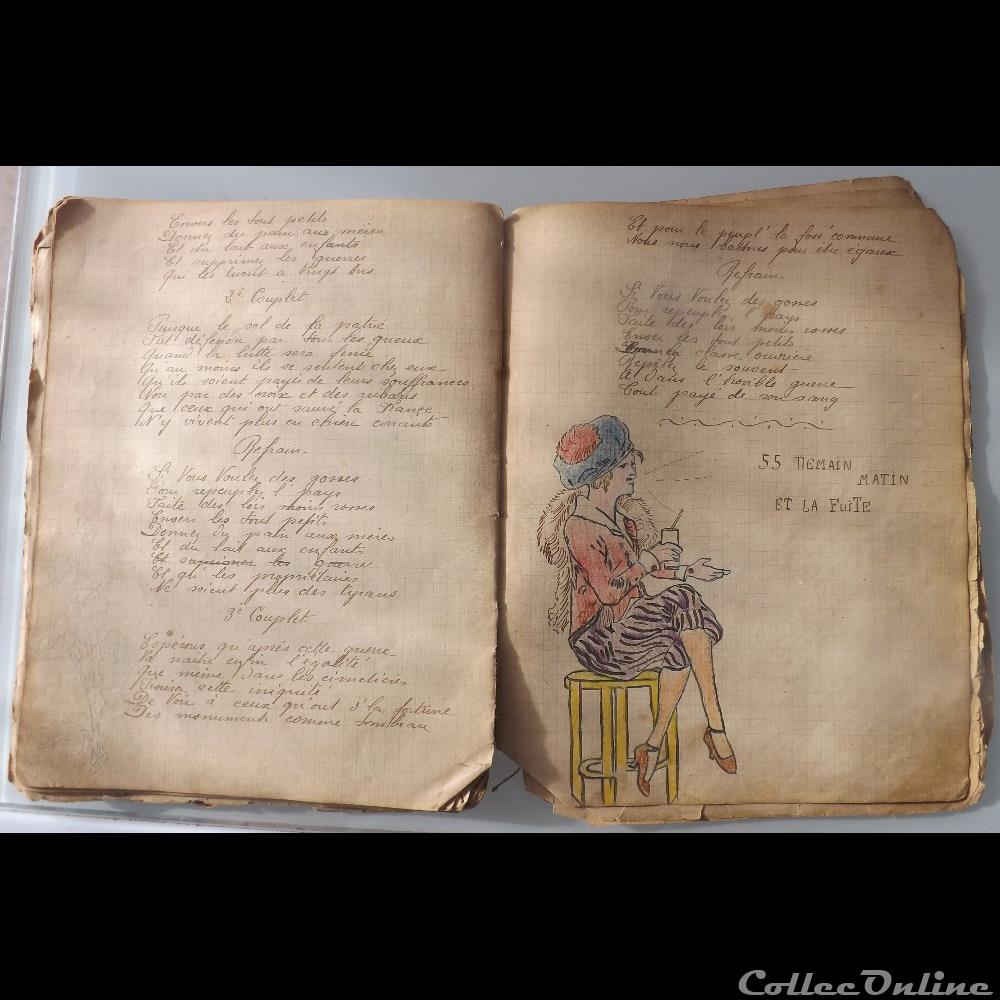 Envers les tous petits
Donnez du pain aux mères
Et du lait aux enfants
Et supprimez les guerres
Qui les tuent à Vingt Ans
2e Couplet
Puisque le sol de la patrie
Fut défendu par tous les gueux
Quand la lutte sera finie
Qu'au moins ils se sentent chez eux
Qu'ils soient payés de leurs souffrances
Non par des croix et des rubans
Que ceux qui ont sauvé la France
N'y vivent plus en chien errants
Refrain.
Si Vous Voulez des gosses
Pour repeupler l'pays
Faite des lois moins rosses
Envers les tout petits
Donnez du pain aux mères
Et du lait aux enfants
Et supprimer les guerre
Et qu les propriétaires
Ne soient plus des tyrans
3e Couplet
Espérons qu'après cette guerre
Va naitre enfin l'égalité
Que même dans les cimetières
Finira cette iniquité
De Voir à ceux qu'ont d'la fortune
Des monuments comme tombeau
Et pour le peupl' la foss' commune
Nous nous battrons pour être égaux
Refrain-
Si Vous Voulez des gosses
Pour repeupl' l'pays
Faite des lois moins rosses
Envers les tout petits
la classe ouvrière
Répétez le souvent
A dans l'horrible guerre
Tout payé de son sang
55 DEMAIN
MATIN
ET LA FUITE
CollecOnline